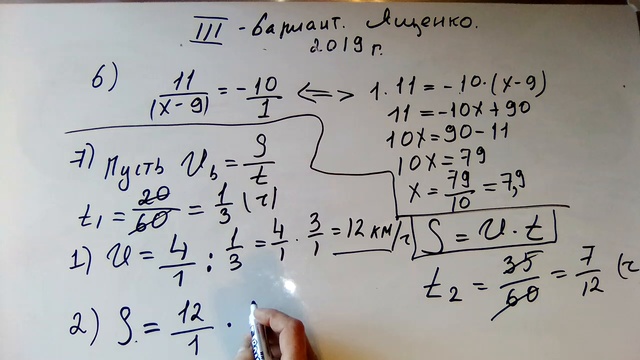 III - вариант. Ященко.
2019 г.
6) 11/(x-9) = -10/1 <=> 1·11 = -10·(x-9)
11 = -10x + 90
10x = 90 - 11
10x = 79
x = 79/10 = 7,9
7) Пусть V_в = S/t
t₁ = 20/60 = 1/3 (ч)
1) V = 4/1 : 1/3 = 4/1 · 3/1 = 12 км/ч
S = V · t
t₂ = 35/60 = 7/12 (ч
2) S = 12/1 ·